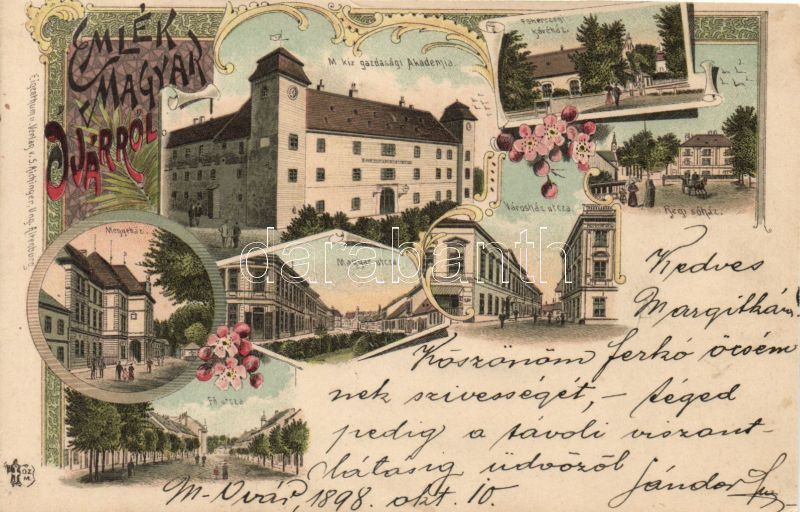 EMLÉK
MAGYAR
ÓJÁRRÓL
M. kir. gazdasági Akademia.
Főherczegi
kávéház.
Régi sóház.
Városház utcza.
Megyeház.
Magyar utcza
Fő utcza
Eigenthum u. Verlag v. S. Kichinger, Ung. Altenburg.
darabanth
Kedves
Margitkám
Köszönöm ferkó öcsém
nek szivességét, – téged
pedig a távoli viszont-
látásig üdvözöl
Sándor
M-Óvár, 1898. okt. 10.